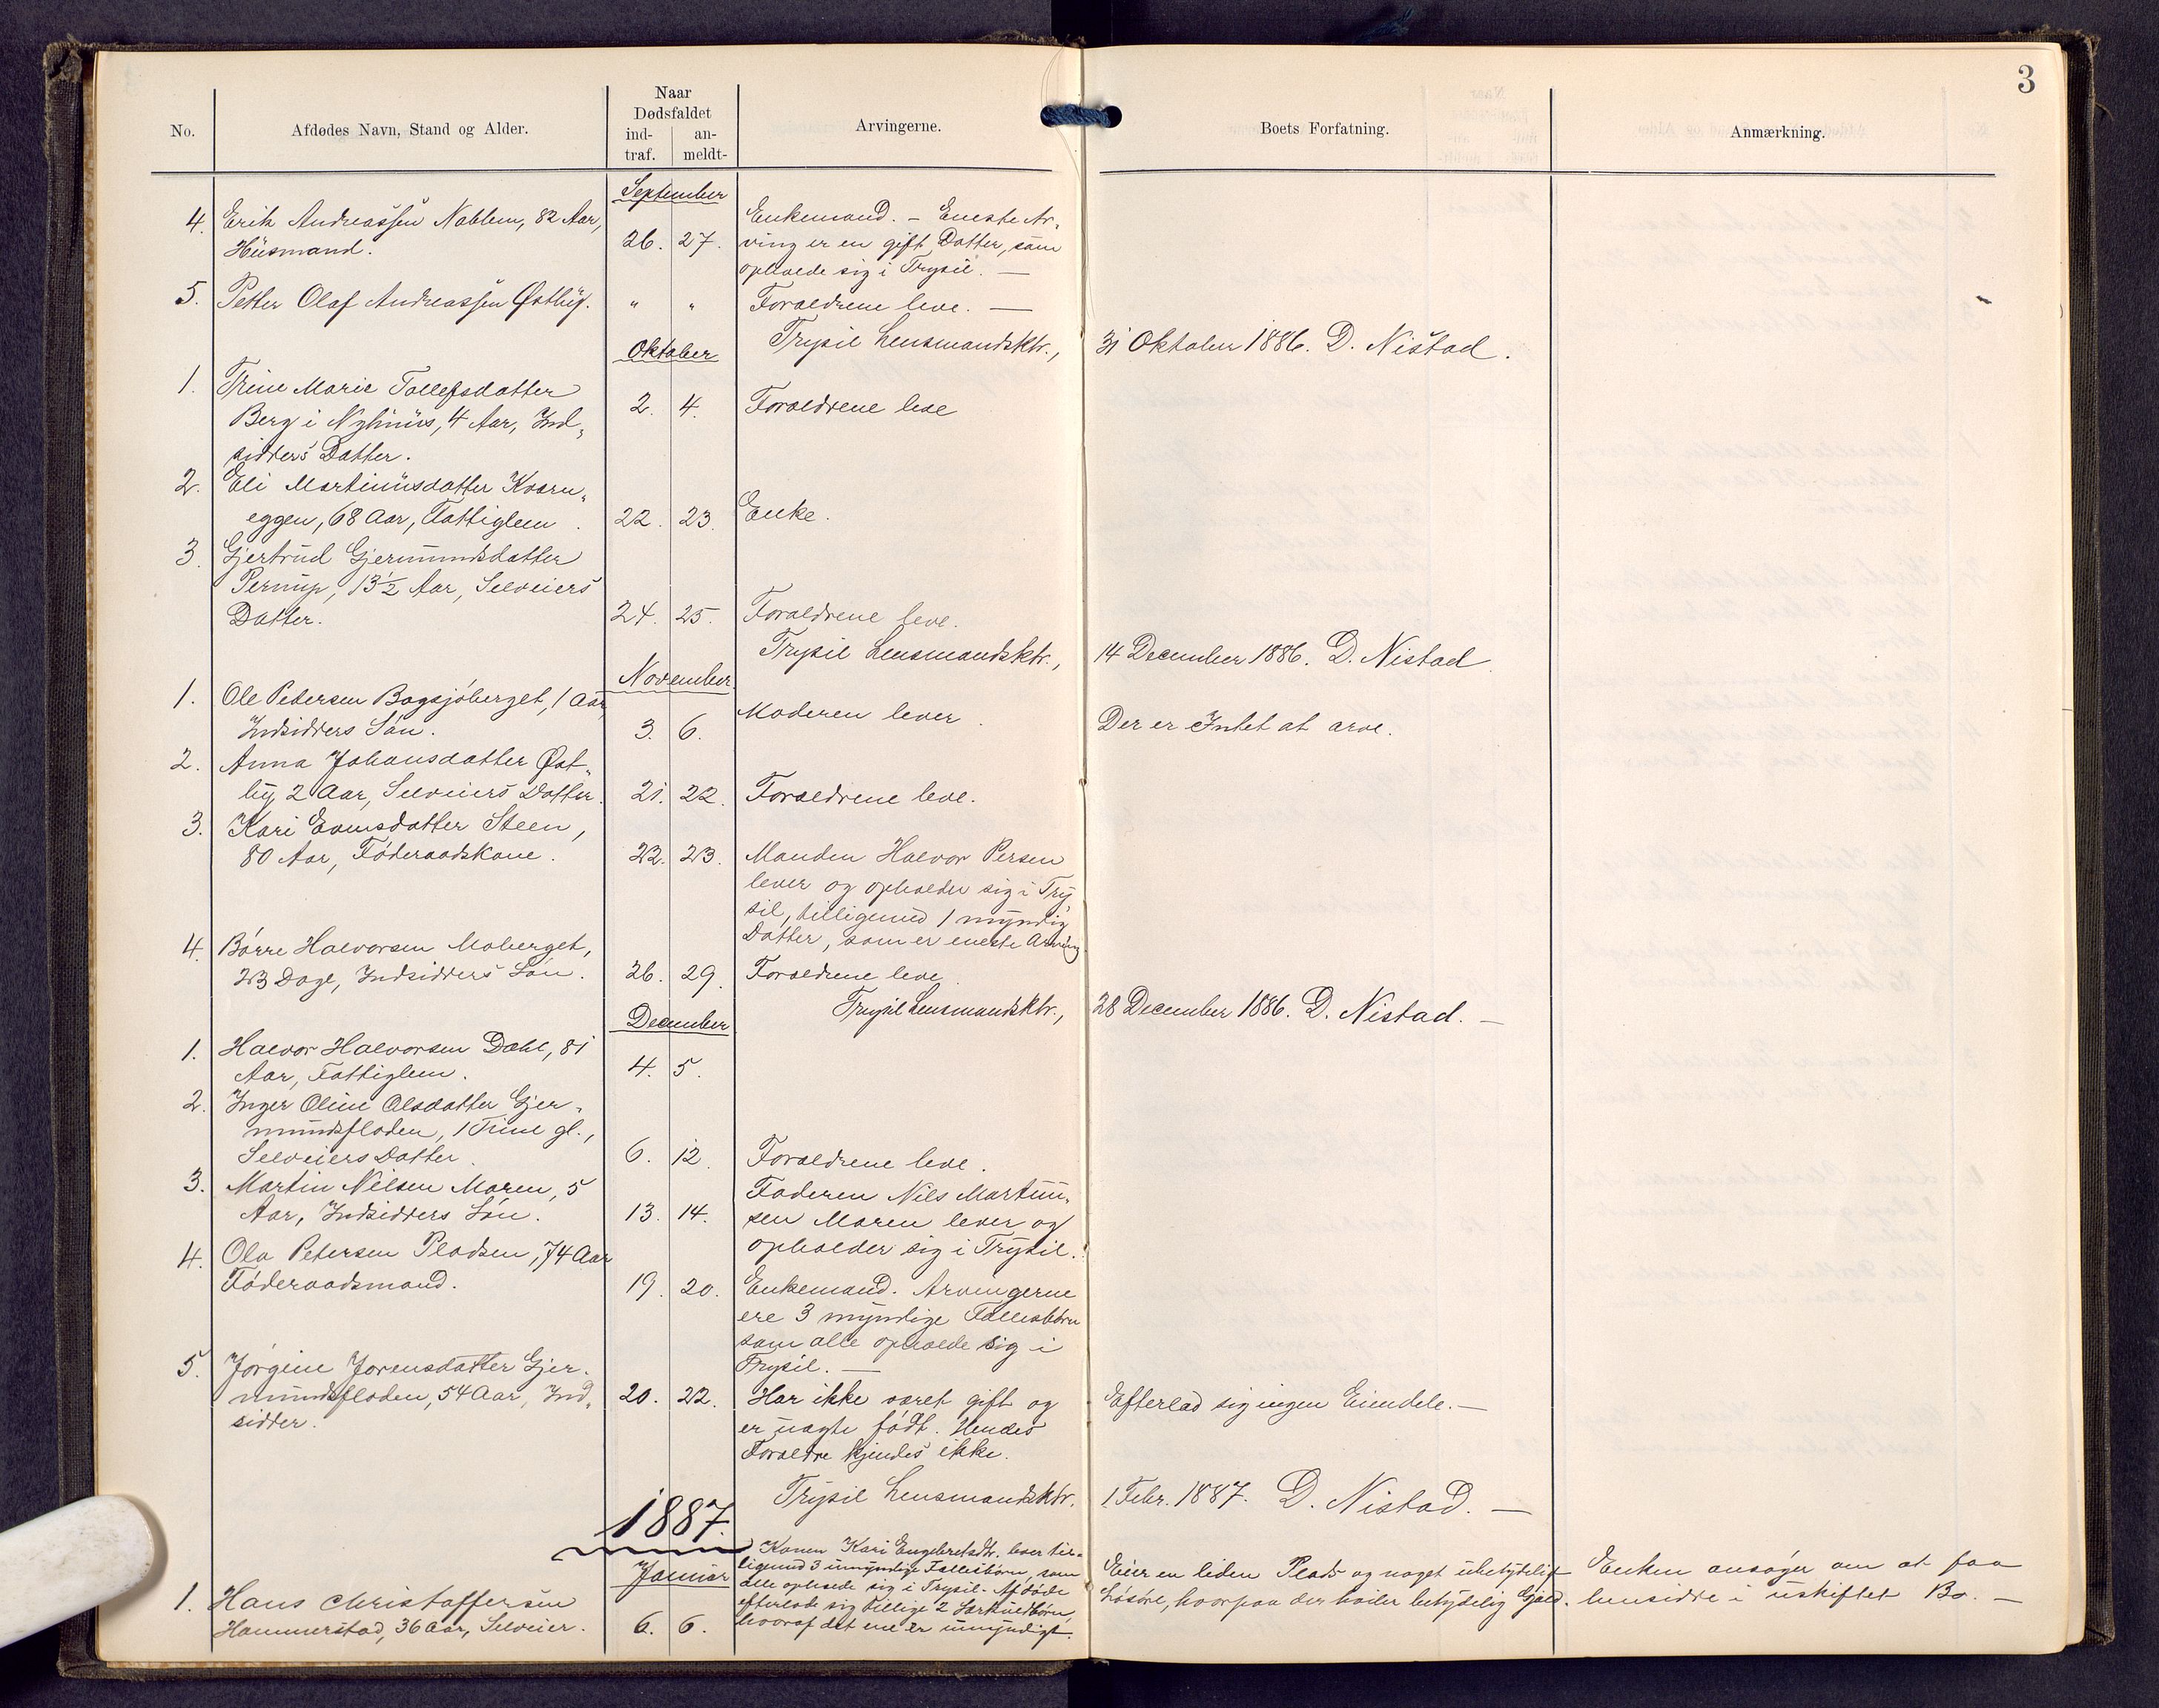 3
No.
Afdødes Navn, Stand og Alder.
Naar
Dødsfaldet
ind-
traf.
an-
meldt-
Arvingerne.
Boets Forfatning.
Anmærkning.
September
4. Erik Andreassen Nablem, 82 Aar,
Husmand.
26. 27.
Enkemand. – Eneste Ar-
ving er en gift Datter, som
opholde sig i Trysil. —
5. Petter Olaf Andreassen Østby.
" "
Forældrene leve. —
Trysil Lensmandsktr., 31 Oktober 1886. D. Nistad.
Oktober
1. Trine Marie Tollefsdatter
Berg i Nyhuus, 4 Aar, Ind-
sidders Datter.
2. 4.
Forældrene leve
2. Eli Martinusdatter Kværn-
eggen, 68 Aar, Fattiglem.
22. 23.
Enke.
3. Gjertrud Gjermundsdatter
Pernup, 13½ Aar, Selveiers
Datter.
24. 25.
Forældrene leve.
Trysil Lensmandsktr., 14 December 1886. D. Nistad
November.
1. Ole Petersen Bagsjøberget, 1 Aar,
Indsidders Søn.
3. 6.
Moderen lever.
Der er Intet at arve.
2. Anna Johansdatter Øst-
by, 2 Aar, Selveiers Datter.
21. 22.
Forældrene leve.
3. Kari Evensdatter Steen,
80 Aar, Føderaadskone.
22. 23.
Manden Halvor Persen
lever og opholder sig i Try-
sil, tilligemed 1 myndig
Datter, som er eneste Arving.
4. Børre Halvorsen Moberget,
23 Dage, Indsidders Søn.
26. 29.
Forældrene leve
Trysil Lensmandsktr., 28 December 1886. D. Nistad. —
December
1. Halvor Halvorsen Dahl, 81
Aar, Fattiglem.
4. 5.
2. Inger Oline Olsdatter Gjer-
mundsfloden, 1 Time gl.,
Selveiers Datter.
6. 12.
Forældrene leve.
3. Martin Nilsen Moren, 5
Aar, Indsidders Søn.
13. 14.
Faderen Nils Martin-
sen Moren lever og
opholder sig i Trysil.
4. Ola Petersen Pladsen, 74 Aar
Føderaadsmand.
19. 20.
Enkemand. Arvingerne
ere 3 myndige Fællesbørn
som alle opholde sig i
Trysil. —
5. Jørgine Jorensdatter Gjer-
mundsfloden, 54 Aar, Ind-
sidder.
20. 22.
Har ikke været gift og
er uægte født. Hendes
Forældre kjendes ikke.
Efterlod sig ingen Eiendele. —
Trysil Lensmandsktr. 1 Febr. 1887. D. Nistad. —
1887.
Januar
1. Hans Christoffersen
Hammerstad, 36 Aar, Selveier.
6. 6.
Konen Kari Engebretsdtr. lever til-
ligemed 3 umyndige Fællesbørn, som
alle opholde sig i Trysil. Afdøde
efterlod sig tillige 2 Særkuldbørn,
hvoraf det ene er umyndigt.
Eier en liden Plads og noget ubetydelig
Løsøre, hvorpaa der hviler betydelig Gjæld.
Enken ansøger om at faa
hensidde i uskiftet Bo. —